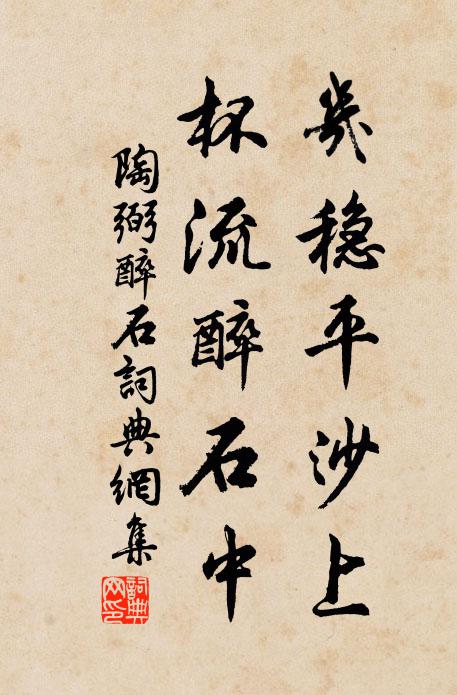 幾稳平沙上
杯流醉石中
陶弼醉石詞典網集
詞典网印